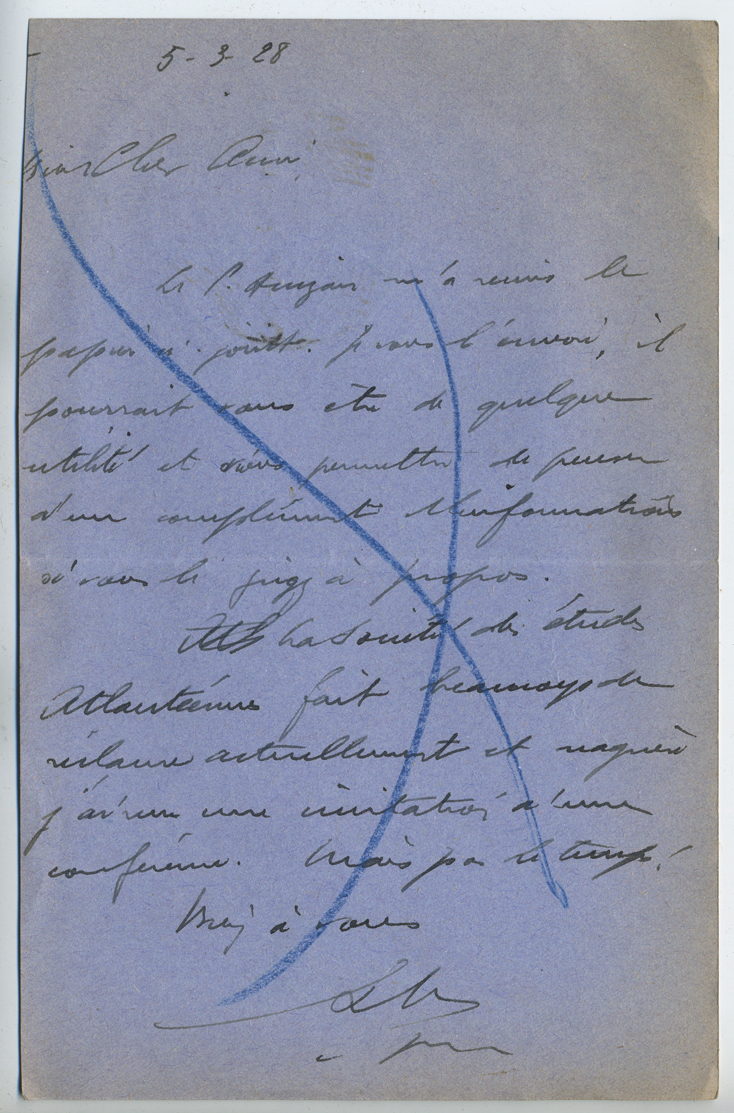 5-3-28
Mon Cher Ami,
Le P. m'a remis le
papier ci-joint. Je vous l'envoi, il
pourrait vous être de quelque
utilité et vous permettre de
d'un complément d'informations
si vous le jugez à propos.
La Société des études
Atlantéennes fait beaucoup de
réclame actuellement et naguère
j'ai reçu une invitation d'une
conférence. Mais pas le temps!
à vous